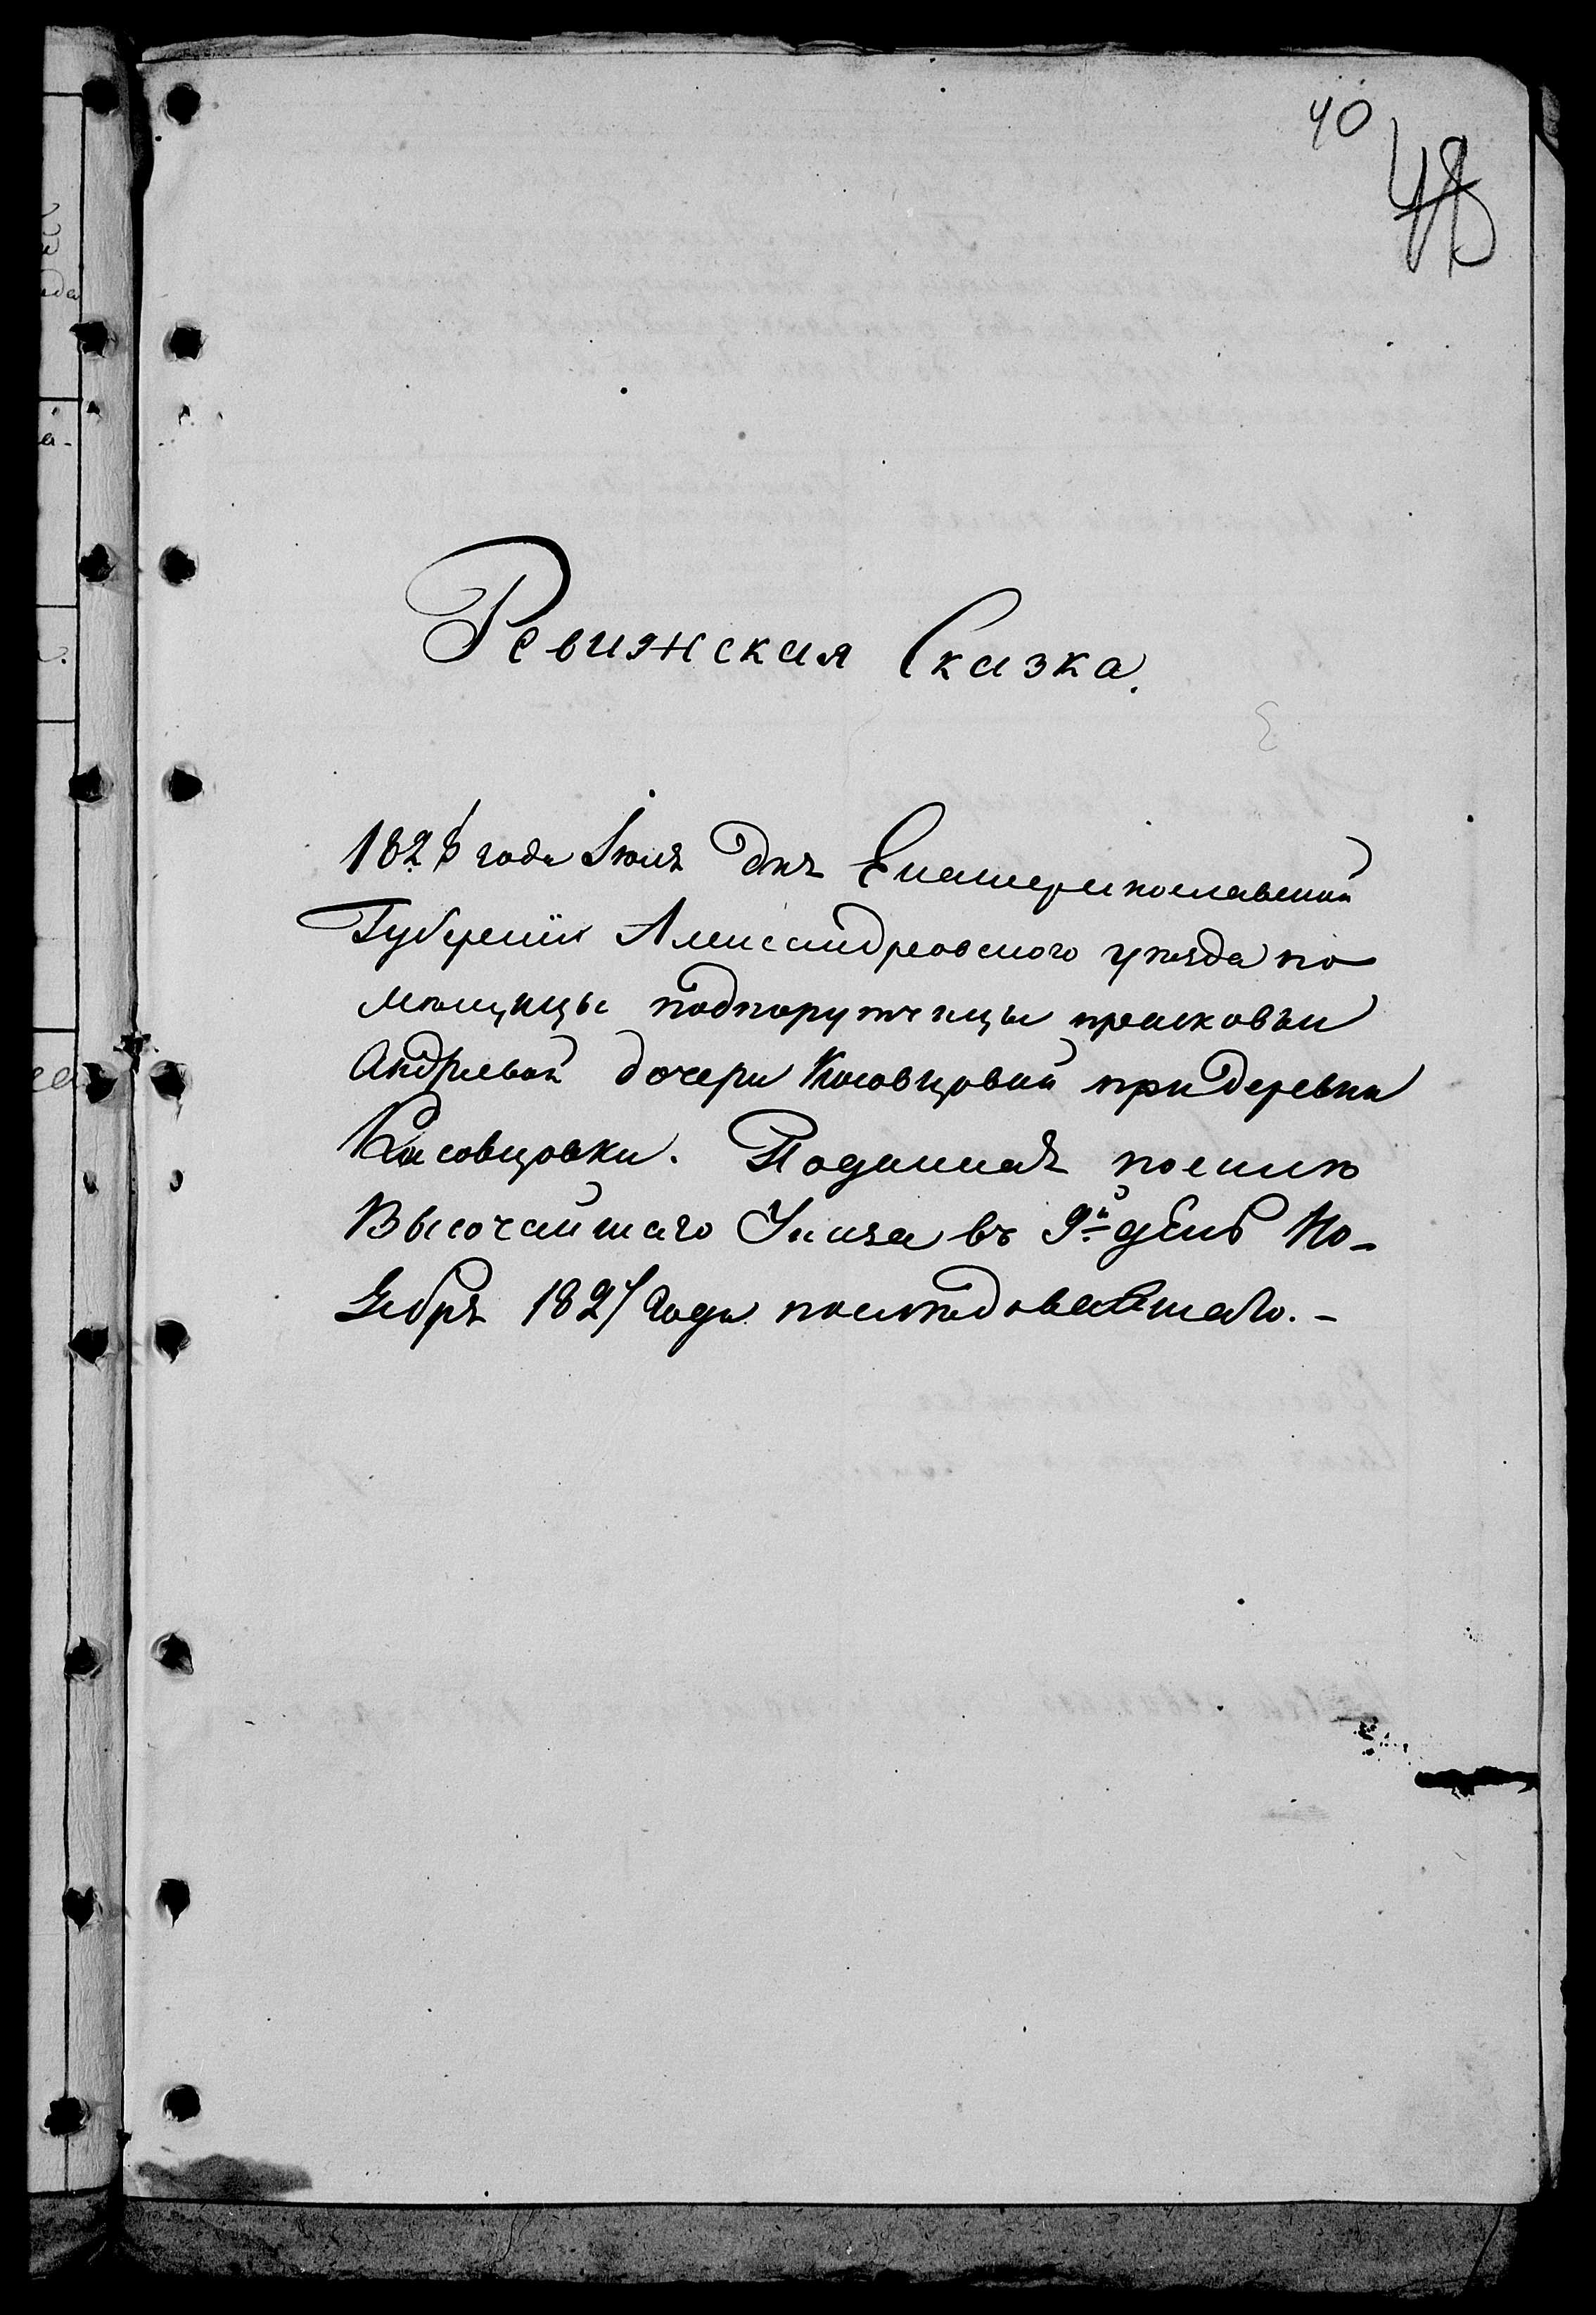 40
48
Ревижская Сказка.
1828 года Июля дня Екатеринославской
Губернiи Александровского уѣзда по
мѣщицы подпоручицы прасковьи
Андрѣевой дочери Косовцовой при деревни
Косовцовки. Поданная посилѣ
Высочайшаго Указа въ 9й день Но-
ября 1827 года послѣдовавшаго.-